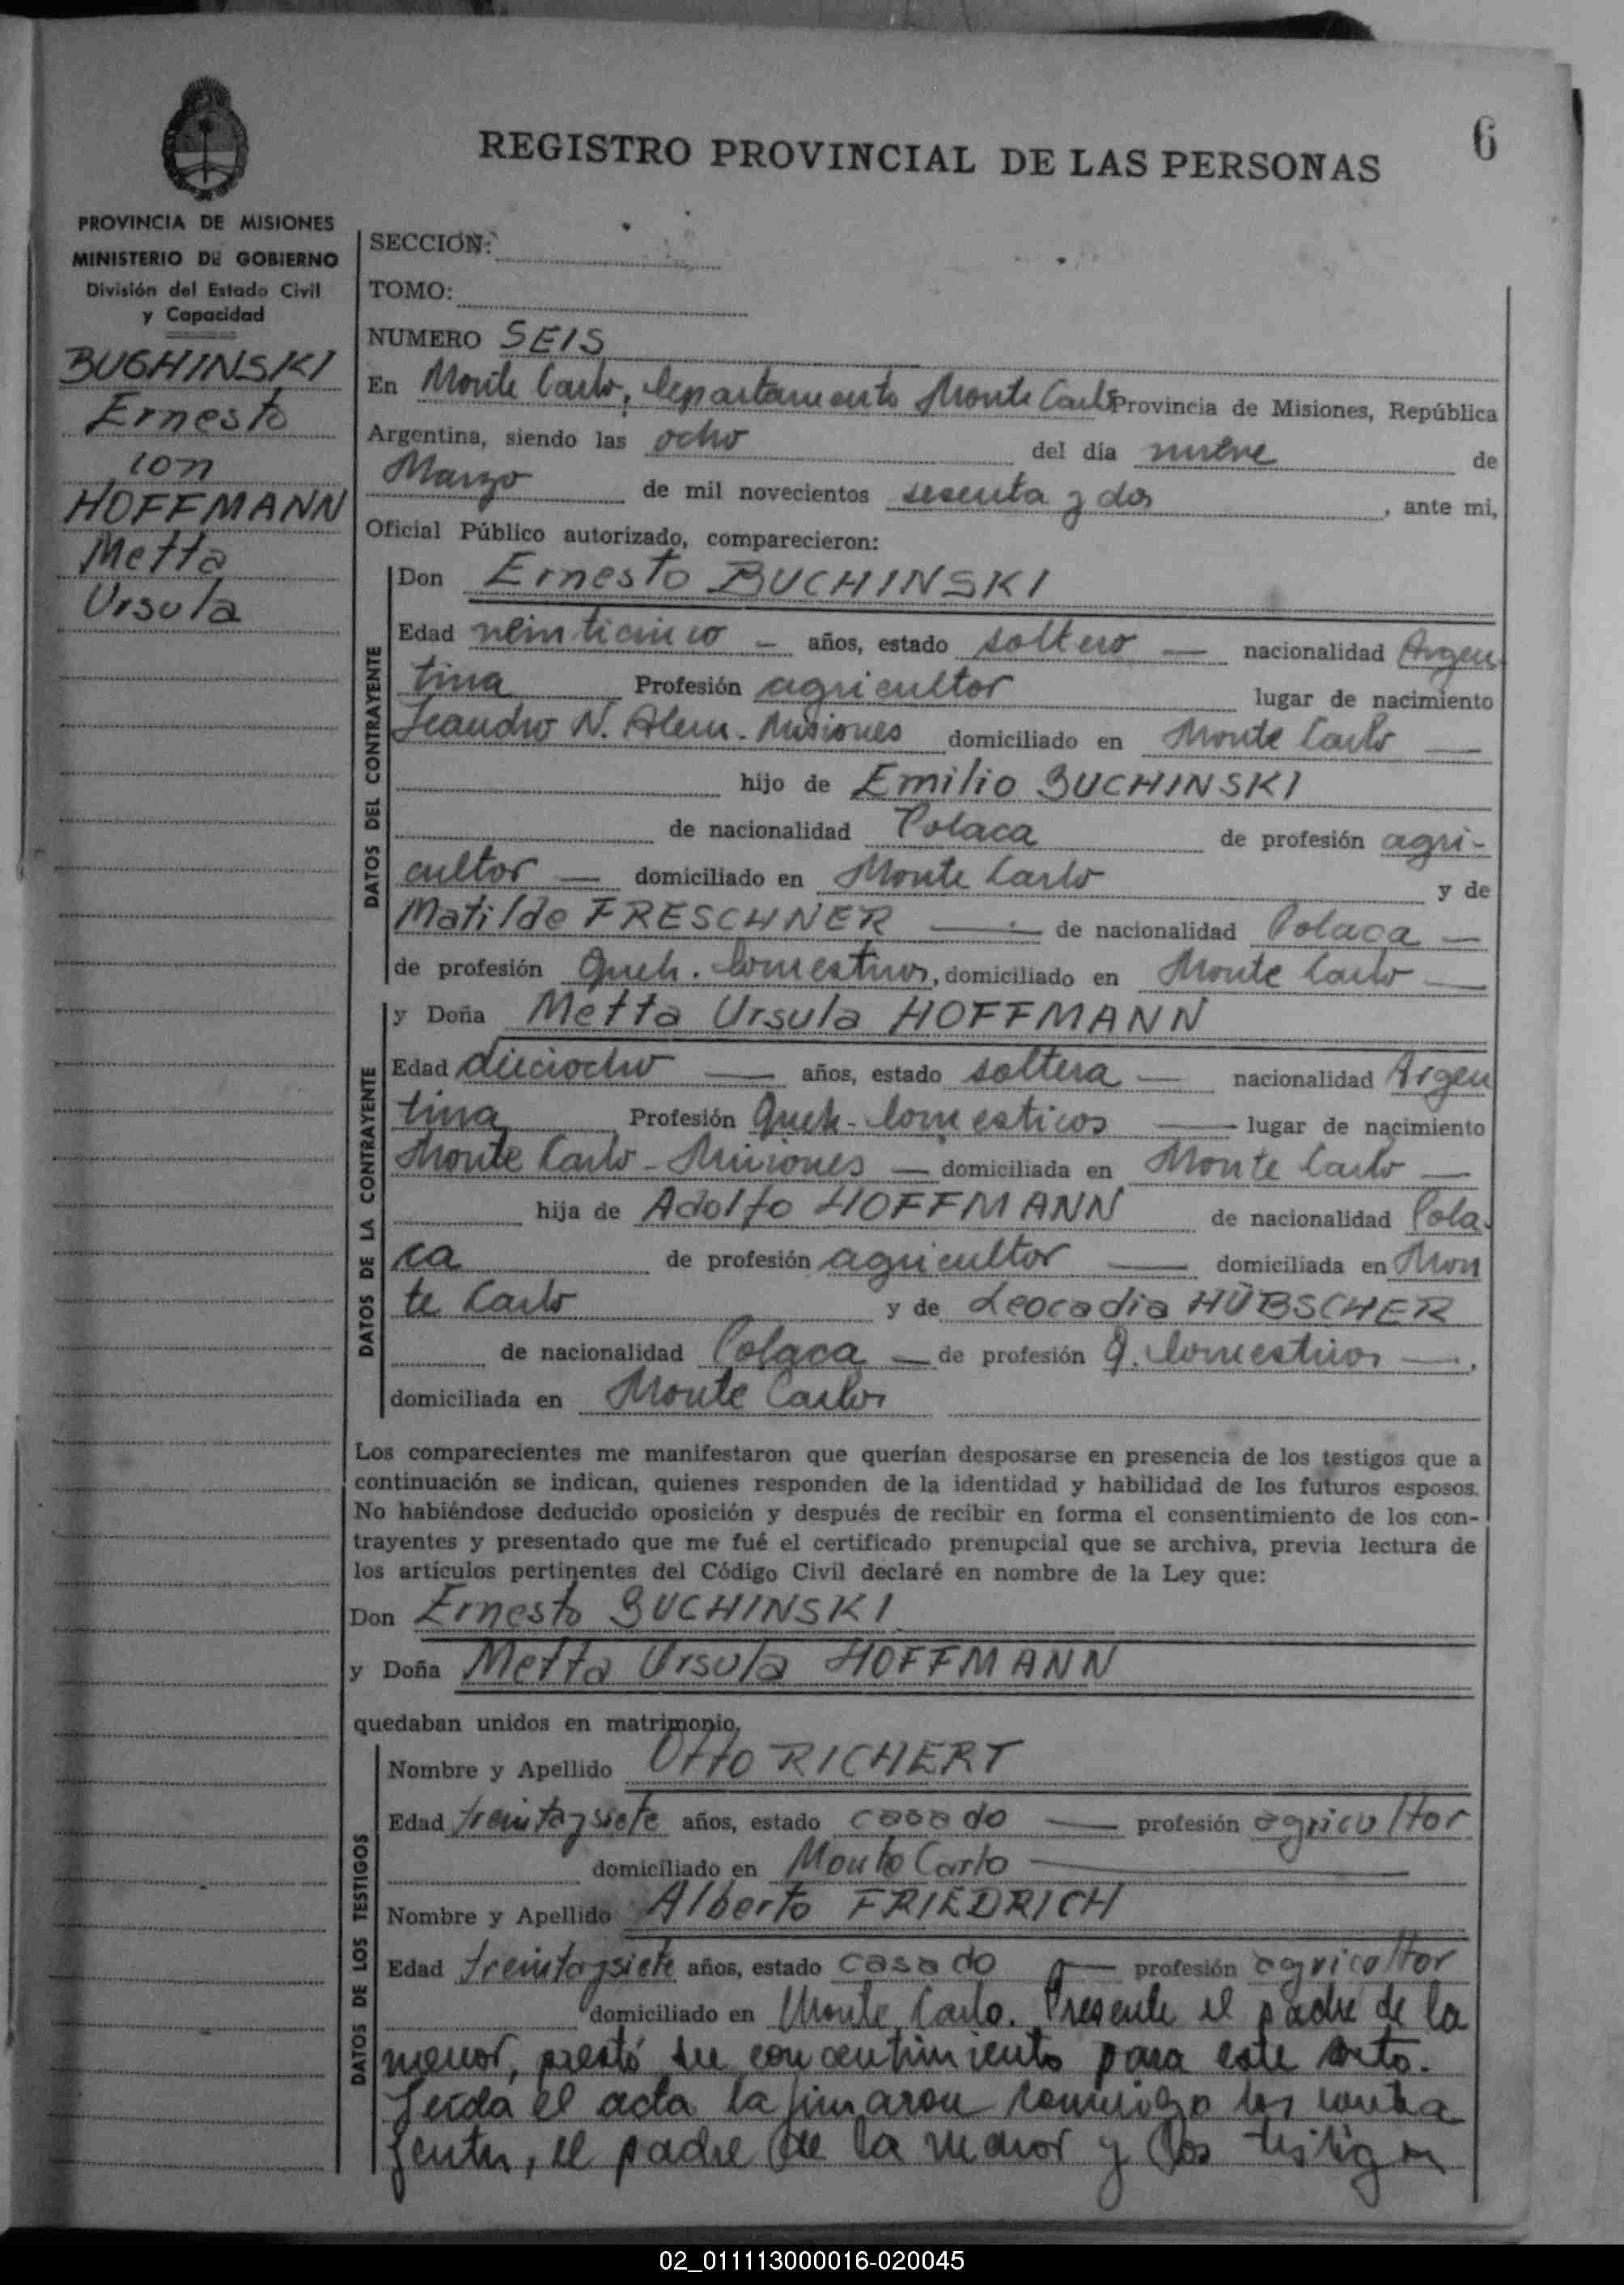 6
REGISTRO PROVINCIAL DE LAS PERSONAS
PROVINCIA DE MISIONES
MINISTERIO DE GOBIERNO
División del Estado Civil
y Capacidad
BUGHINSKI
Ernesto
con
HOFFMANN
Metta
Ursula
SECCION:
TOMO:
NUMERO SEIS
En Monte Carlo, departamento Monte Carlo Provincia de Misiones, República
Argentina, siendo las ocho del día nueve de
Marzo de mil novecientos sesenta y dos, ante mi,
Oficial Público autorizado, comparecieron:
DATOS DEL CONTRAYENTE
Don Ernesto BUCHINSKI
Edad veinticinco — años, estado soltero — nacionalidad Argen
tina Profesión agricultor lugar de nacimiento
Leandro N. Alem - Misiones domiciliado en Monte Carlo —
hijo de Emilio BUCHINSKI
de nacionalidad Polaca de profesión agri-
cultor — domiciliado en Monte Carlo y de
Matilde FRESCHNER — de nacionalidad Polaca —
de profesión Queh. domesticos, domiciliado en Monte Carlo —
DATOS DE LA CONTRAYENTE
y Doña Metta Ursula HOFFMANN
Edad dieciocho — años, estado soltera — nacionalidad Argen
tina Profesión Queh - domesticos — lugar de nacimiento
Monte Carlo - Misiones — domiciliada en Monte Carlo —
hija de Adolfo HOFFMANN de nacionalidad Pola-
ca de profesión agricultor — domiciliada en Mon
te Carlo y de Leocadia HÜBSCHER
de nacionalidad Polaca — de profesión Q. domesticos —,
domiciliada en Monte Carlo
Los comparecientes me manifestaron que querían desposarse en presencia de los testigos que a
continuación se indican, quienes responden de la identidad y habilidad de los futuros esposos.
No habiéndose deducido oposición y después de recibir en forma el consentimiento de los con-
trayentes y presentado que me fué el certificado prenupcial que se archiva, previa lectura de
los artículos pertinentes del Código Civil declaré en nombre de la Ley que:
Don Ernesto BUCHINSKI
y Doña Metta Ursula HOFFMANN
quedaban unidos en matrimonio.
DATOS DE LOS TESTIGOS
Nombre y Apellido Otto RICHERT
Edad treintaysiete años, estado casado — profesión agricultor
domiciliado en Monte Carlo —
Nombre y Apellido Alberto FRIEDRICH
Edad treintaysiete años, estado casado — profesión agricultor
domiciliado en Monte Carlo. Presente el padre de la
menor, prestó su concentimiento para este acto.
Leída el acta la firmaron conmigo los contra
yentes, el padre de la menor y los testigos
02_011113000016-020045